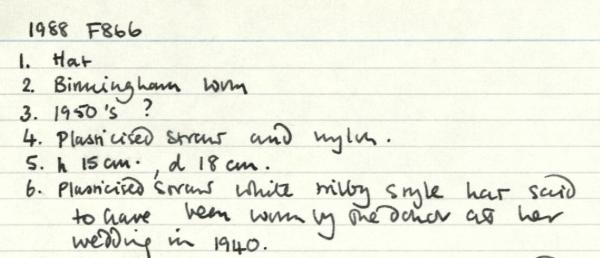 1988 F866
1. Hat
2. Birmingham worn
3. 1950's ?
4. Plasticised straw and nylon.
5. h 15cm., d 18 cm.
6. Plasticised straw white trilby style hat said
to have been worn by the donor at her
wedding in 1940.